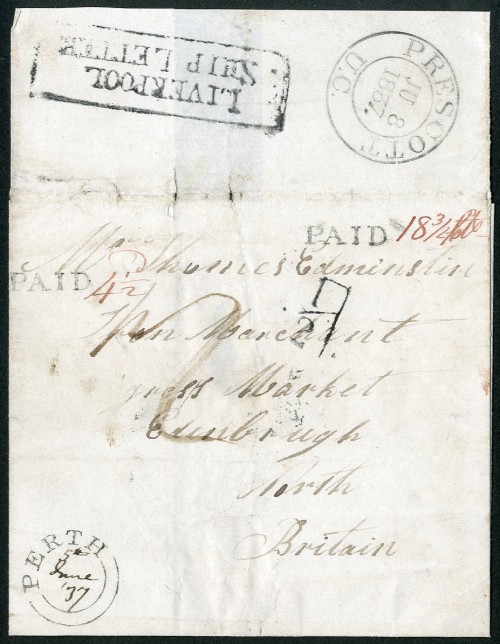 LIVERPOOL
SHIP LETTER
PRESCOTT. U.C.
JU 8
1837.
PAID 18 3/4
Mr Thomes Edminstin
PAID 4 1/2
Iron Marchant
gress Market
Edinbrugh
North
Britain
1/2
PERTH
5th
June
'37